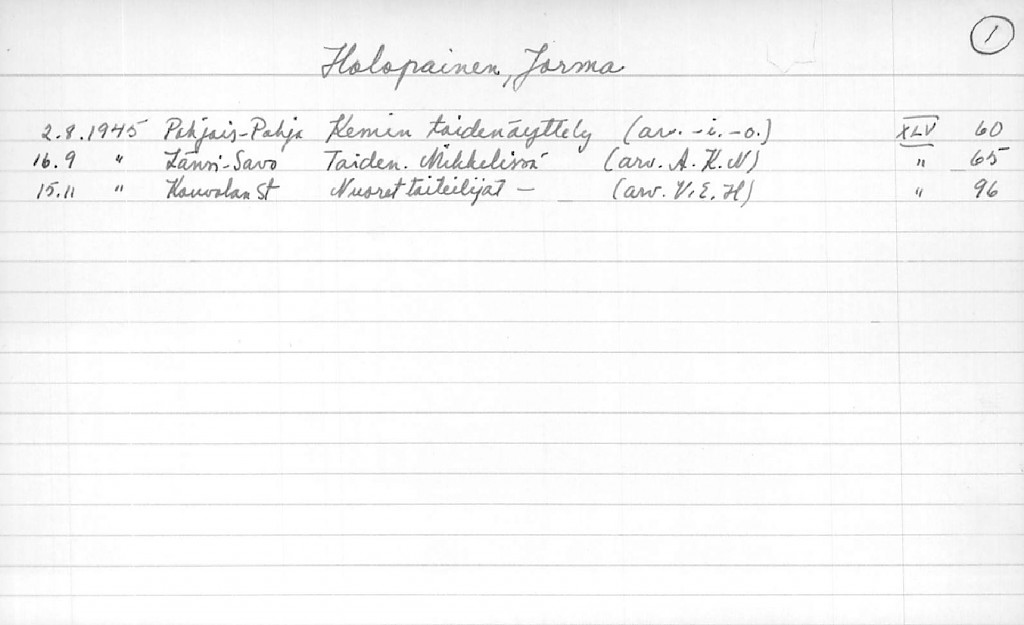 1
Holopainen, Jorma
2.8.1945 Pohjois-Pohja Kemin taidenäyttely (arv. -i. -o.) XLV 60
16.9 " Länsi-Savo Taiden. Mikkelissä (arv. A. K. N) " 65
15.11 " Kouvolan St Nuoret taiteilijat — (arv. V. E. H) " 96